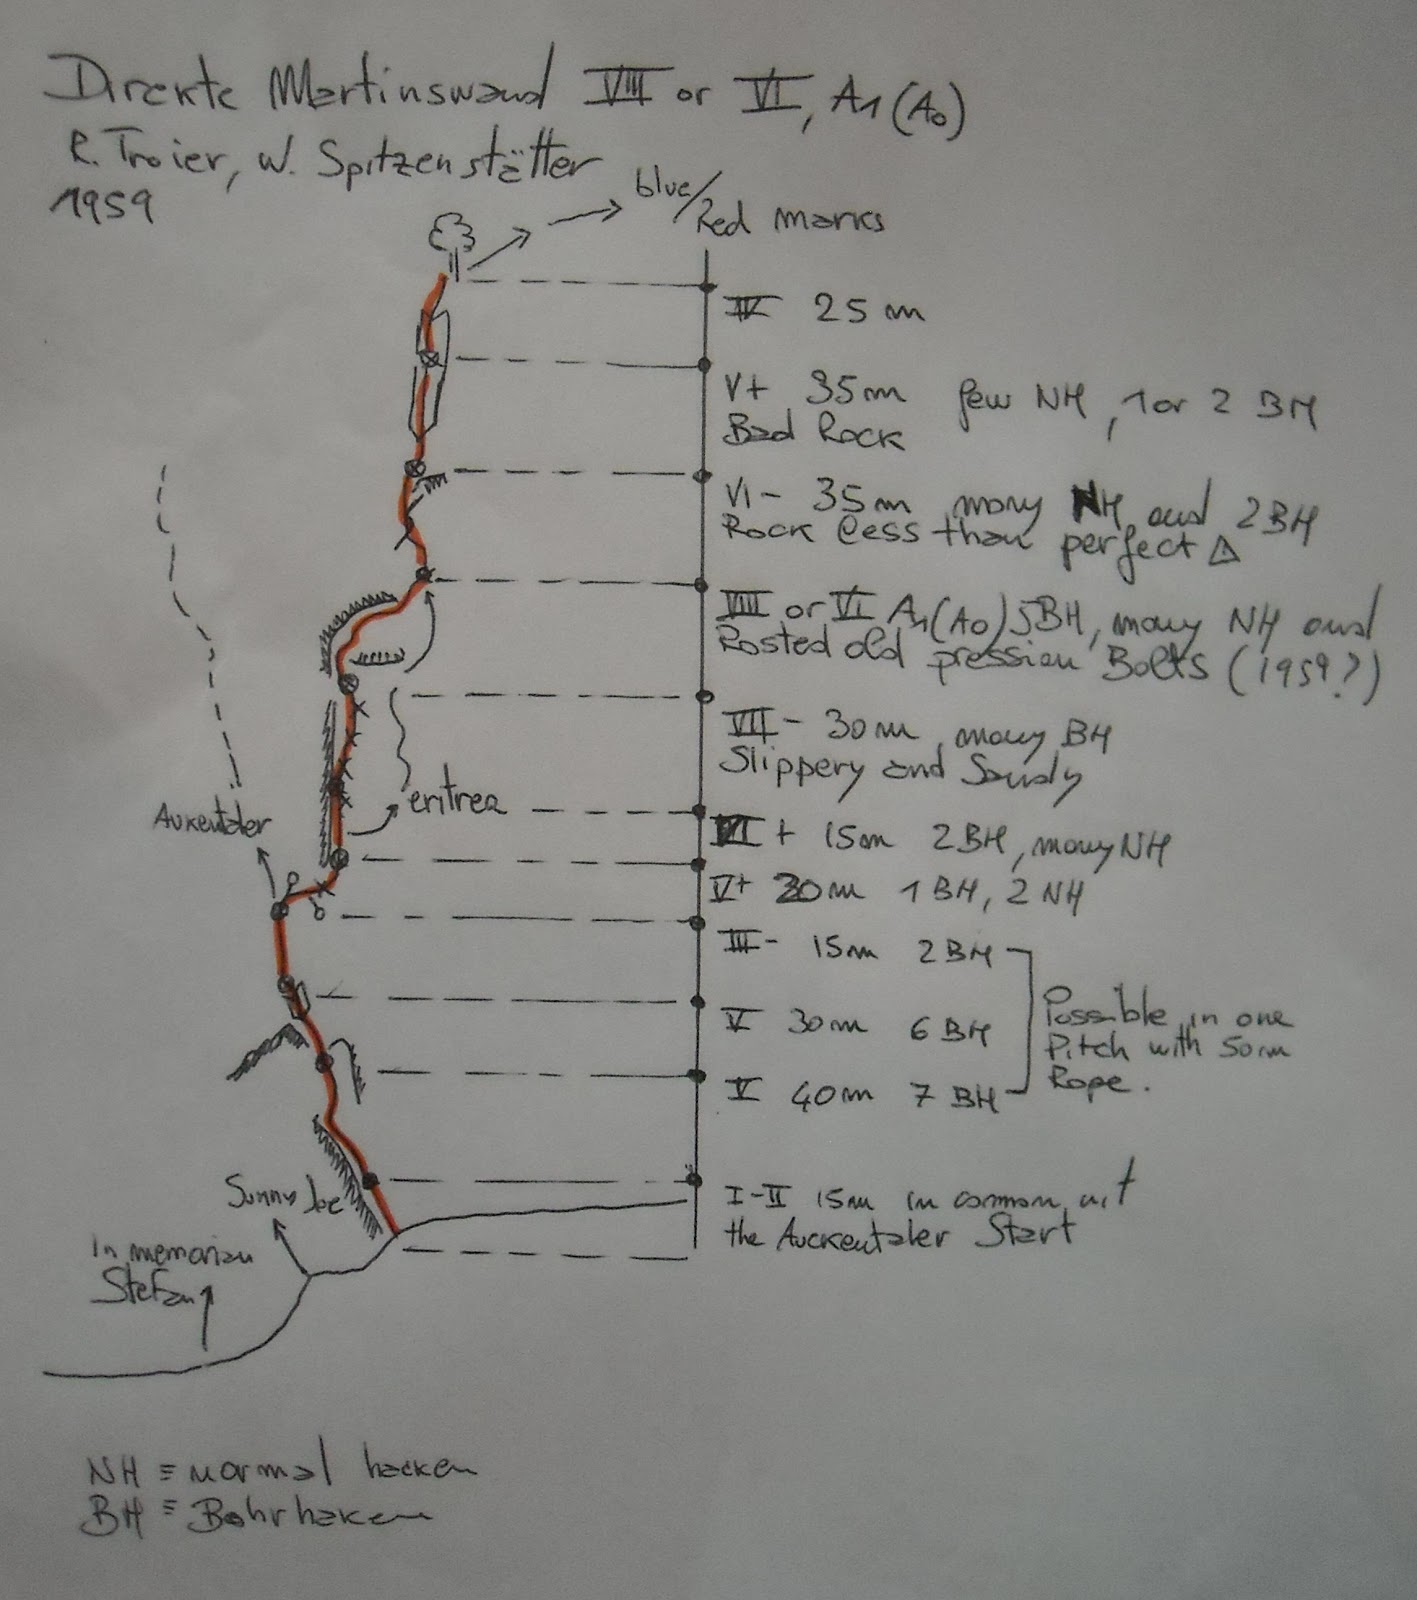 Direkte Martinswand VIII or VI, A1 (A0)
R. Troier, W. Spitzenstätter
1959
blue/
Red marks
IV 25 m
V+ 35m few NH, 1 or 2 BH
Bad Rock
VI- 35m many NH, and 2BH
Rock less than perfect
VIII or VI A1(A0) 5BH, many NH and
Rosted old pression Bolts (1959?)
VII- 30m, many BH
Slippery and Sandy
eritrea
Aukentaler
VI+ 15m 2BH, many NH
V+ 20m 1 BH, 2 NH
III- 15m 2 BH
V 30m 6 BH
Possible in one
Pitch with 50m
Rope.
V 40m 7 BH
Sunny Joe
I-II 15m in common wit
the Auckentaler Start
In memorian
Stefan
NH = normal hacken
BH = Bohrhaken